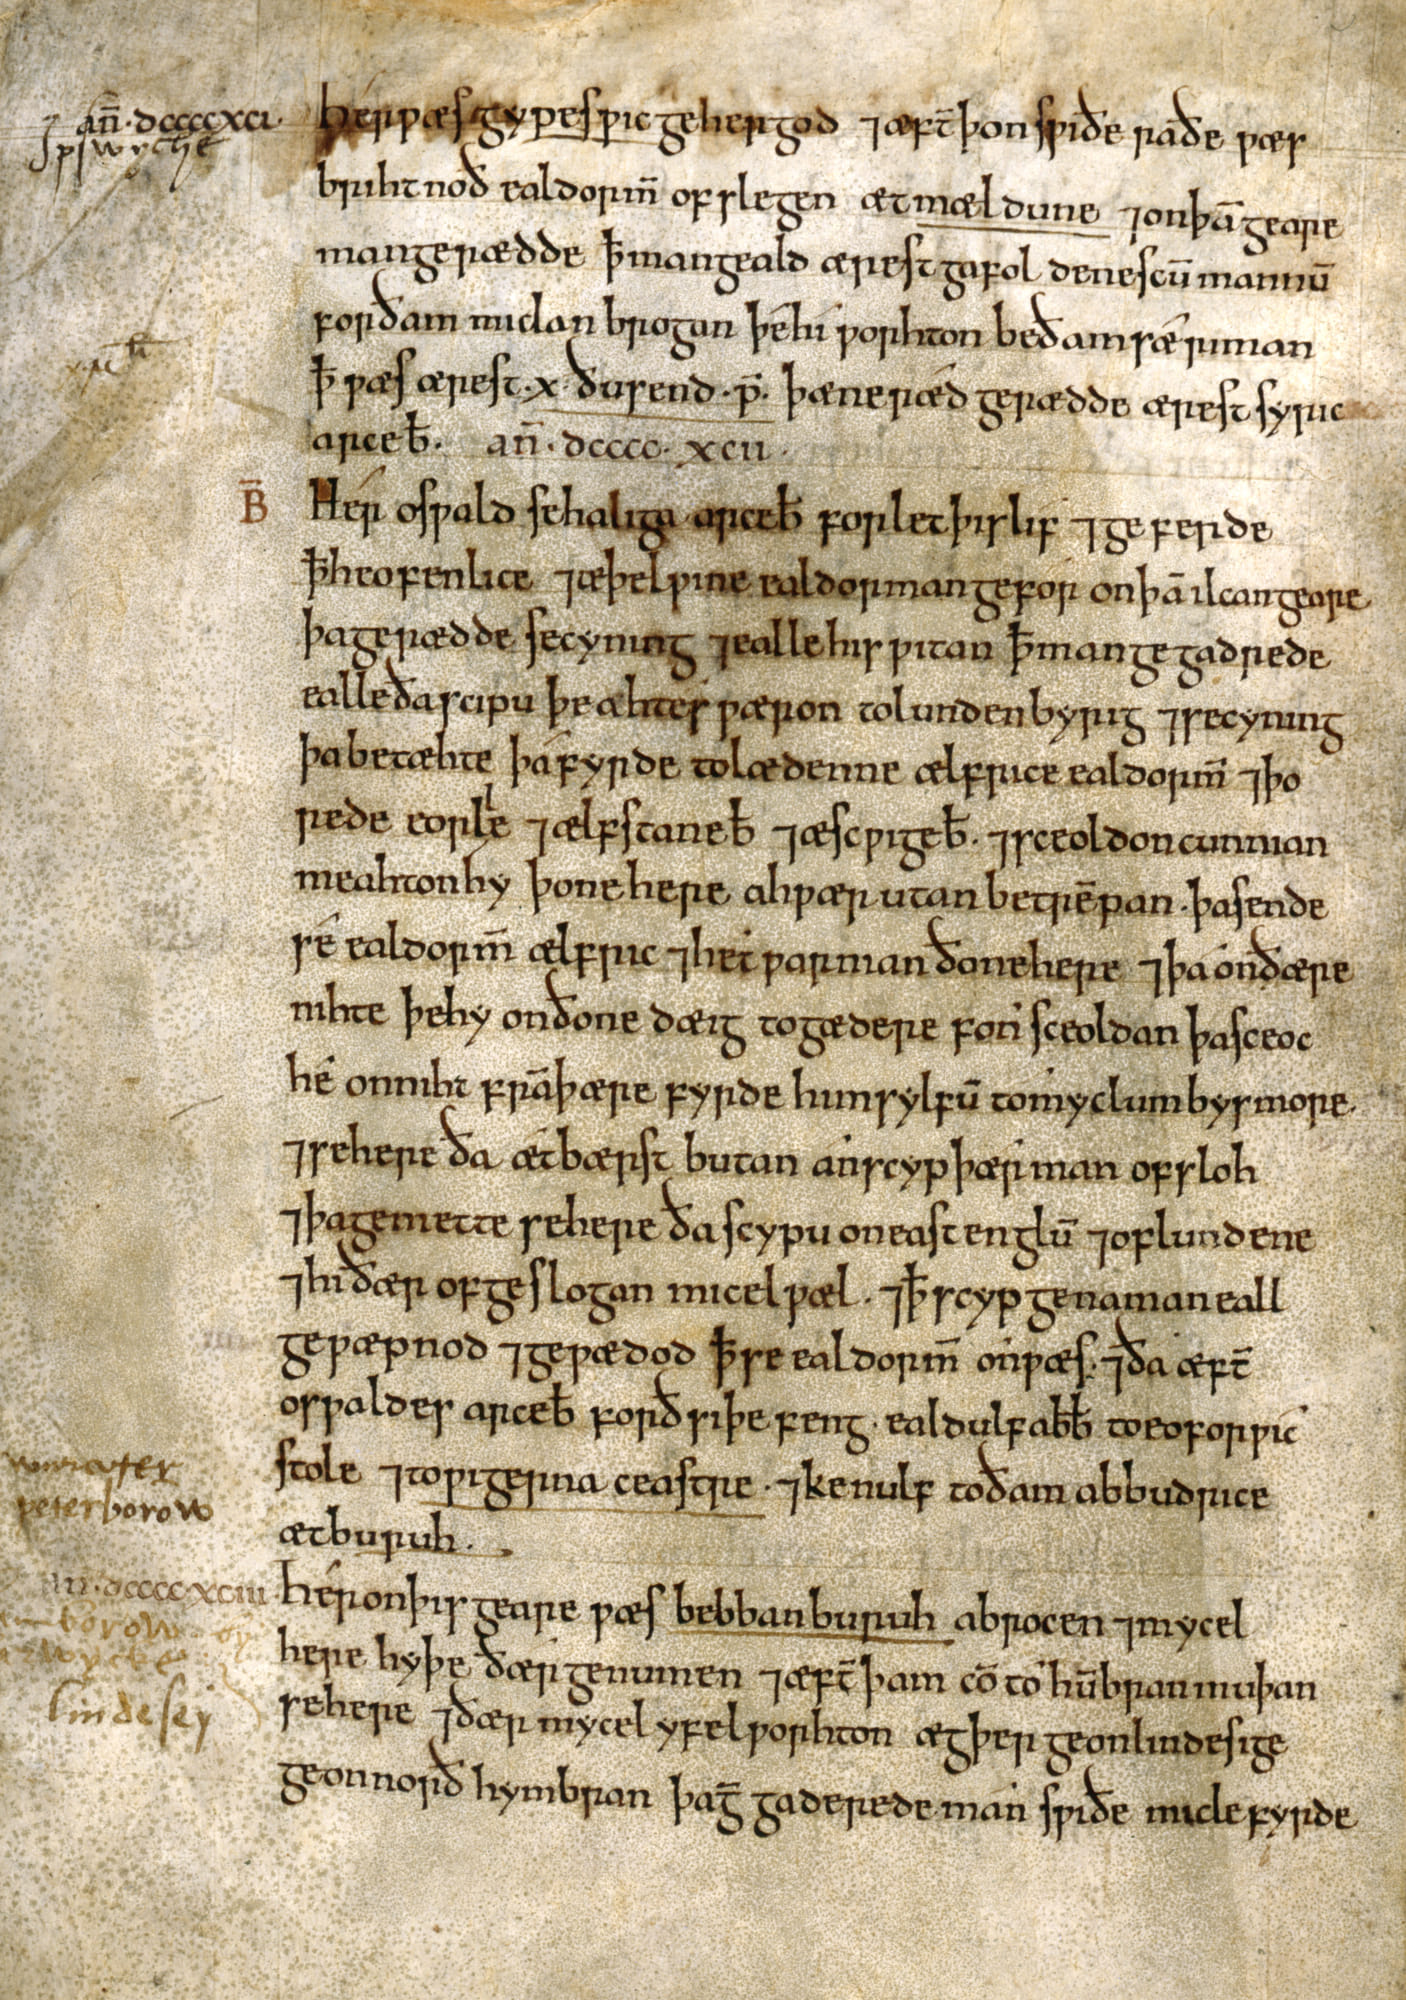 an̄·dcccc xci· Hér ƿæs gypesƿic gehergod ⁊ æft̄ þon sƿiðe raðe ƿæs
Ipswyche
brihtnoð ealdorm̄ ofslegen æt mældune ⁊ on þā geare
man gerædde ꝥ man geald ærest gafol deniscū mannū
for ðam miclan brogan þe hi ƿorhton be ðam sǽ riman
ꝥ ƿæs ærest ·x· ðusend · p̄· þæne rǽd gerædde ærest syric
arceb̄· an̄·dcccc·xcii·
B̄ Hér osƿald se haliga arceb̄ forlet þis lif ⁊ geferde
ꝥ heofenlice ⁊ æþelƿine ealdorman gefor on þā ilcan geare
þa gerædde se cyning ⁊ ealle his ƿitan ꝥ man gegadrede
ealle ða scipu þe ahtes ƿæron to lunden byrig ⁊ se cyning
þa betæhte þa fyrde to lædenne ælfrice ealdorm̄ ⁊ þo
rede eorle ⁊ ælfstane b̄ ⁊ æscƿige b̄· ⁊ sceoldon cunnian
meahton hy þone here ahƿær utan betrēpan · þa sende
se ealdorm̄ ælfric ⁊ het ƿarnian ðone here ⁊ þa on ðære
nihte þe hy on ðone dæig togædere fon sceoldan þa sceoc
hé on niht frā þære fyrde him sylfū to myclum bysmore·
⁊ se here ða ætbærst butan án scyp þær man ofsloh
⁊ þa gemette se here ða scypu on east englū ⁊ of lundene
⁊ hi ðær ofgeslogan micel ƿæl· ⁊ ꝥ scyp genaman eall
geƿæpnod ⁊ geƿædod ꝥ se ealdorm̄ on ƿæs· ⁊ ða æft̄
osƿaldes arceb̄ forðsiþe feng· ealdulf abb̄ to eoforƿic
stole ⁊ to ƿigerna ceastre · ⁊ kenulf to ðam abbudrice
peterborow
æt buruh·
an̄·dcccc xciii Hér on þis geare ƿæs bebban buruh abrocen ⁊ mycel
here hyþe ðær genumen ⁊ æft̄ þam cō to hūbran muþan
lindesey
se here ⁊ ðær mycel yfel ƿorhton ægþer ge on lindesige
ge on norðhymbran þa ḡ gaderede man sƿiðe micle fyrde